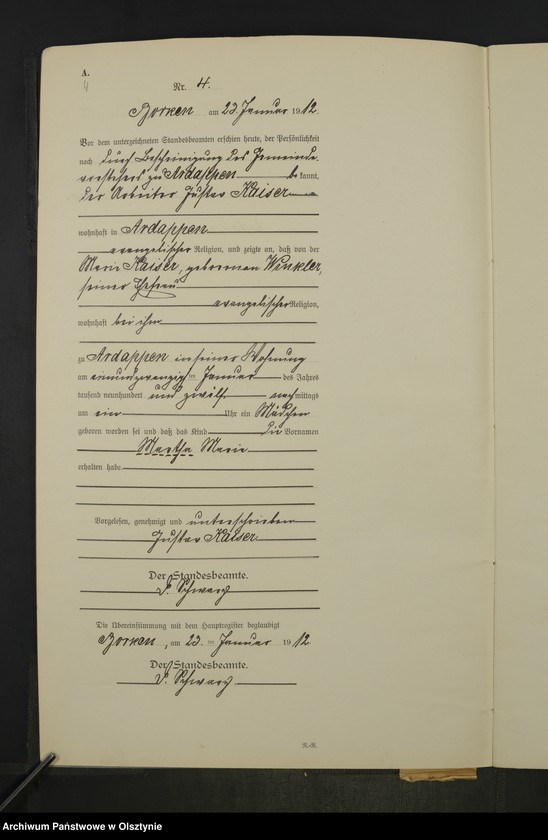 A.
4
Nr. 4.
Borken am 23. Januar 1912.
Vor dem unterzeichneten Standesbeamten erschien heute, der Persönlichkeit
nach durch Bescheinigung des Gemeinde-
vorstehers zu Ardappen bekannt,
der Arbeiter Gustav Kaiser
wohnhaft in Ardappen
evangelischer Religion, und zeigte an, daß von der
Marie Kaiser, geborenen Winkler,
seiner Ehefrau
evangelischer Religion,
wohnhaft bei ihm
zu Ardappen in seiner Wohnung
am einundzwanzigsten Januar des Jahres
tausend neunhundert und zwölf nachmittags
um ein Uhr ein Mädchen
geboren worden sei und daß das Kind die Vornamen
Martha Marie
erhalten habe
Vorgelesen, genehmigt und unterschrieben
Gustav Kaiser
Der Standesbeamte.
Schwarz
Die Übereinstimmung mit dem Hauptregister beglaubigt
Borken, am 23. ten Januar 1912
Der Standesbeamte.
Schwarz
Archiwum Państwowe w Olsztynie